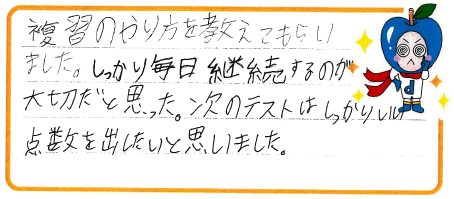 複習のやり方を教えてもらい
ました。しっかり毎日継続するのが
大切だと思った。次のテストはしっかりいい
点数を出したいと思いました。
d